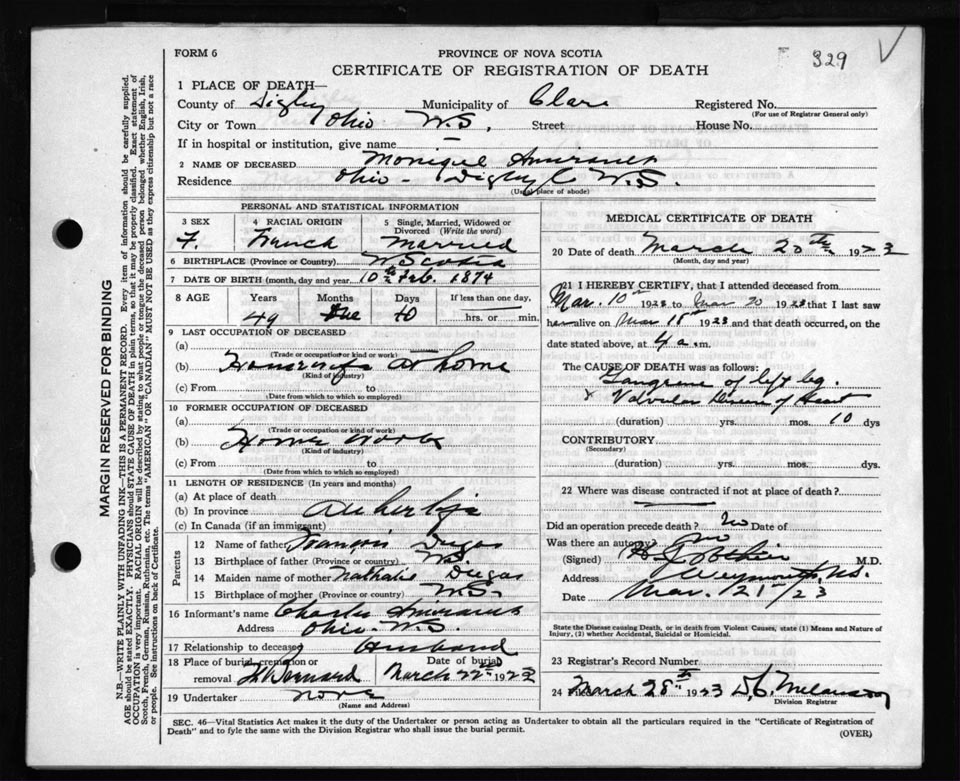 FORM 6
PROVINCE OF NOVA SCOTIA
329
CERTIFICATE OF REGISTRATION OF DEATH
1 PLACE OF DEATH—
County of Digby Municipality of Clare Registered No.
(For use of Registrar General only)
City or Town Ohio N.S. Street House No.
If in hospital or institution, give name —
2 NAME OF DECEASED Monique
Residence Ohio - Digby C N.S.
(Usual place of abode)
PERSONAL AND STATISTICAL INFORMATION
3 SEX F. 4 RACIAL ORIGIN French 5 Single, Married, Widowed or Divorced (Write the word) Married
6 BIRTHPLACE (Province or Country) N Scotia
7 DATE OF BIRTH (month, day and year) 10th Feb. 1874
8 AGE Years Months Days If less than one day,
49 One 10 hrs. or min.
9 LAST OCCUPATION OF DECEASED
(a) —
(Trade or occupation or kind or work)
(b) Housewife At home
(Kind of industry)
(c) From to
(Date from which to which so employed)
10 FORMER OCCUPATION OF DECEASED
(a)
(Trade or occupation or kind of work)
(b) Home work
(Kind of industry)
(c) From to
(Date from which to which so employed)
11 LENGTH OF RESIDENCE (In years and months)
(a) At place of death
(b) In province All her life
(c) In Canada (if an immigrant)
Parents
12 Name of father François Dugas
13 Birthplace of father (Province or country) N.S.
14 Maiden name of mother Nathalie Dugas
15 Birthplace of mother (Province or country) N.S.
16 Informant's name Charles
Address Ohio N.S.
17 Relationship to deceased Husband
18 Place of burial, cremation or removal St Bernard Date of burial March 22nd 1923
19 Undertaker None
(Name and Address)
MEDICAL CERTIFICATE OF DEATH
20 Date of death March 20th 1923
(Month, day and year)
21 I HEREBY CERTIFY, that I attended deceased from
Mar. 10th 1923 to Mar 20 1923 that I last saw
her alive on Mar 18th 1923 and that death occurred, on the
date stated above, at 4 a.m.
The CAUSE OF DEATH was as follows:
Gangrene of left leg.
& Valvular Disease of Heart
(duration) yrs. mos. 10 dys
CONTRIBUTORY
(Secondary)
(duration) yrs. mos. dys.
22 Where was disease contracted if not at place of death?
Did an operation precede death? No Date of
Was there an autopsy? no
(Signed) M.D.
Address Weymouth, N.S.
Date Mar. 21/23
State the Disease causing Death, or in death from Violent Causes, state (1) Means and Nature of Injury, (2) whether Accidental, Suicidal or Homicidal.
23 Registrar's Record Number
24 March 28th 1923 D.C. Melanson
Division Registrar
SEC. 46—Vital Statistics Act makes it the duty of the Undertaker or person acting as Undertaker to obtain all the particulars required in the "Certificate of Registration of
Death" and to fyle the same with the Division Registrar who shall issue the burial permit.
(OVER)
MARGIN RESERVED FOR BINDING
N.B.—WRITE PLAINLY WITH UNFADING INK—THIS IS A PERMANENT RECORD. Every item of information should be carefully supplied.
AGE should be stated EXACTLY. PHYSICIANS should STATE CAUSE OF DEATH in plain terms, so that it may be properly classified. Exact statement of
OCCUPATION is very important. RACIAL ORIGIN will be described by stating to what people or tongue the deceased person belonged whether English, Irish,
Scotch, French, German, Russian, Ruthenian, etc. The terms "AMERICAN" or "CANADIAN" MUST NOT BE USED as they express citizenship but not a race
or people. See instructions on back of Certificate.